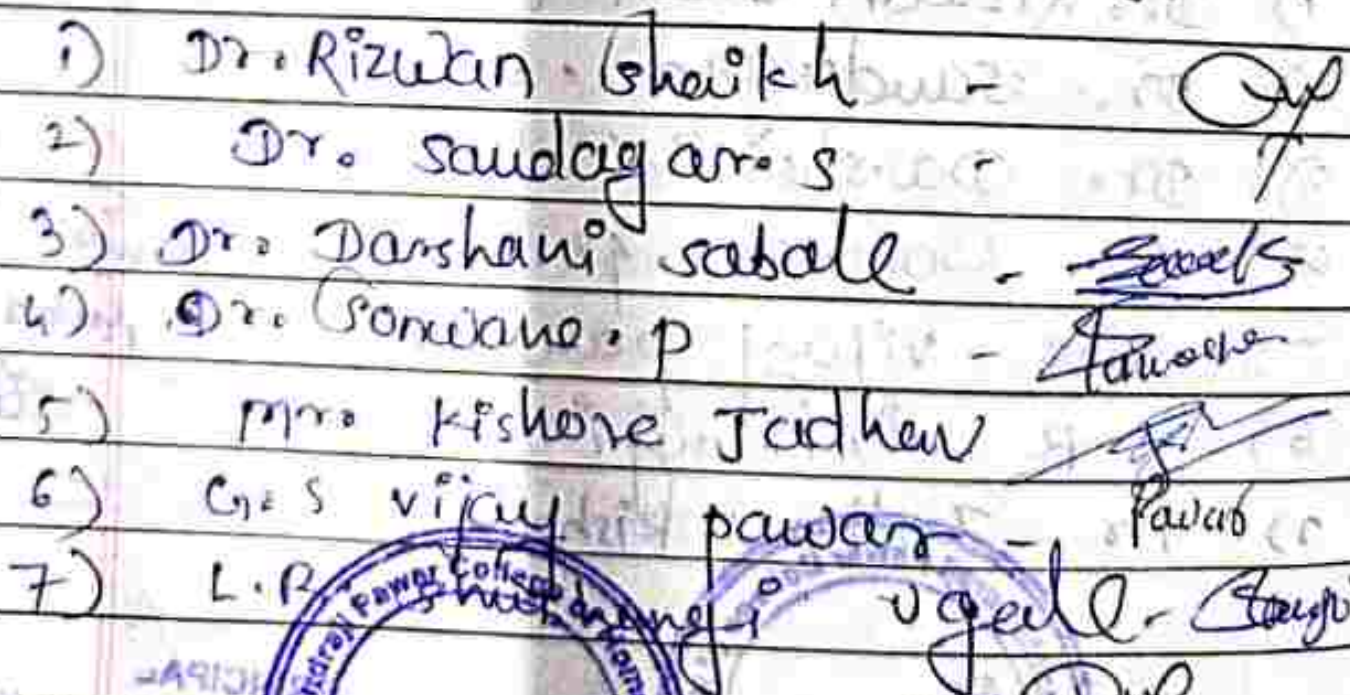 1) Dr. Rizwan. Shaikh -
2) Dr. Saudagar. S -
3) Dr. Darshani sabale -
4) Dr. Sonwane. P -
5) Mr. Kishore Jadhav
6) G.S vijay pawar - Pawar
7) L.R Shubhangi Ugale -
Pawar College